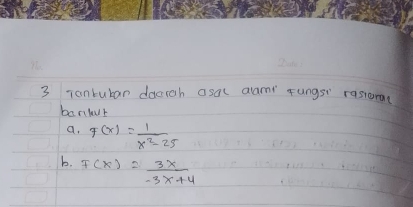 3 Tentukan daerah asal alami fungsi rasional
berikut
a. f(x) = 1/x²-25
b. f(x) = 3x/-3x+4